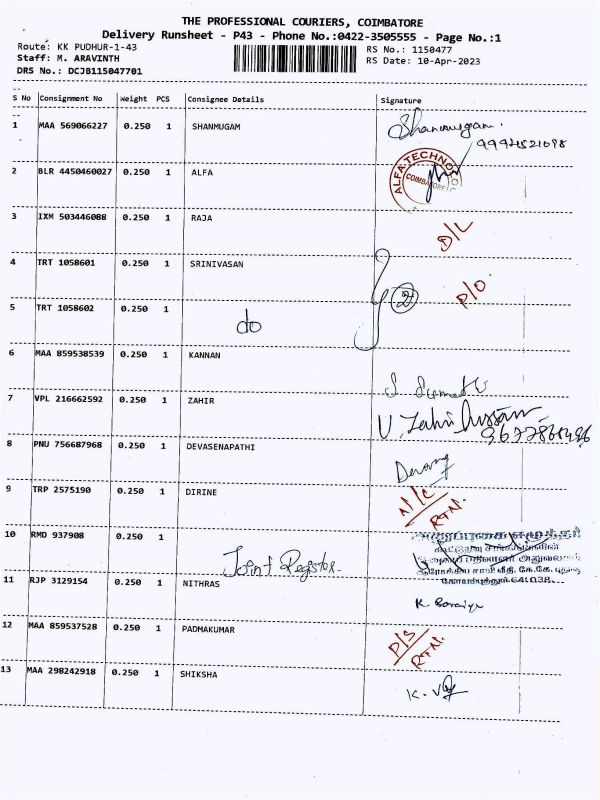 THE PROFESSIONAL COURIERS, COIMBATORE
Delivery Runsheet - P43 - Phone No.:0422-3505555 - Page No.:1
Route: KK PUDHUR-1-43
RS No.: 1150477
Staff: M. ARAVINTH
RS Date: 10-Apr-2023
DRS No.: DCJB115047701
S No Consignment No Weight PCS Consignee Details Signature
1 MAA 569066227 0.250 1 SHANMUGAM Shanmugam.
2 BLR 4450460027 0.250 1 ALFA ALFA TECHNO COIMBATORE
3 IXM 503446088 0.250 1 RAJA D/L
4 TRT 1058601 0.250 1 SRINIVASAN P/O
5 TRT 1058602 0.250 1 do 2
6 MAA 859538539 0.250 1 KANNAN
7 VPL 216662592 0.250 1 ZAHIR
8 PNU 756687968 0.250 1 DEVASENAPATHI
9 TRP 2575190 0.250 1 DIRINE N/C RTN.
10 RMD 937908 0.250 1 Joint Registor
11 RJP 3129154 0.250 1 NITHRAS
12 MAA 859537528 0.250 1 PADMAKUMAR P/S RTN.
13 MAA 298242918 0.250 1 SHIKSHA